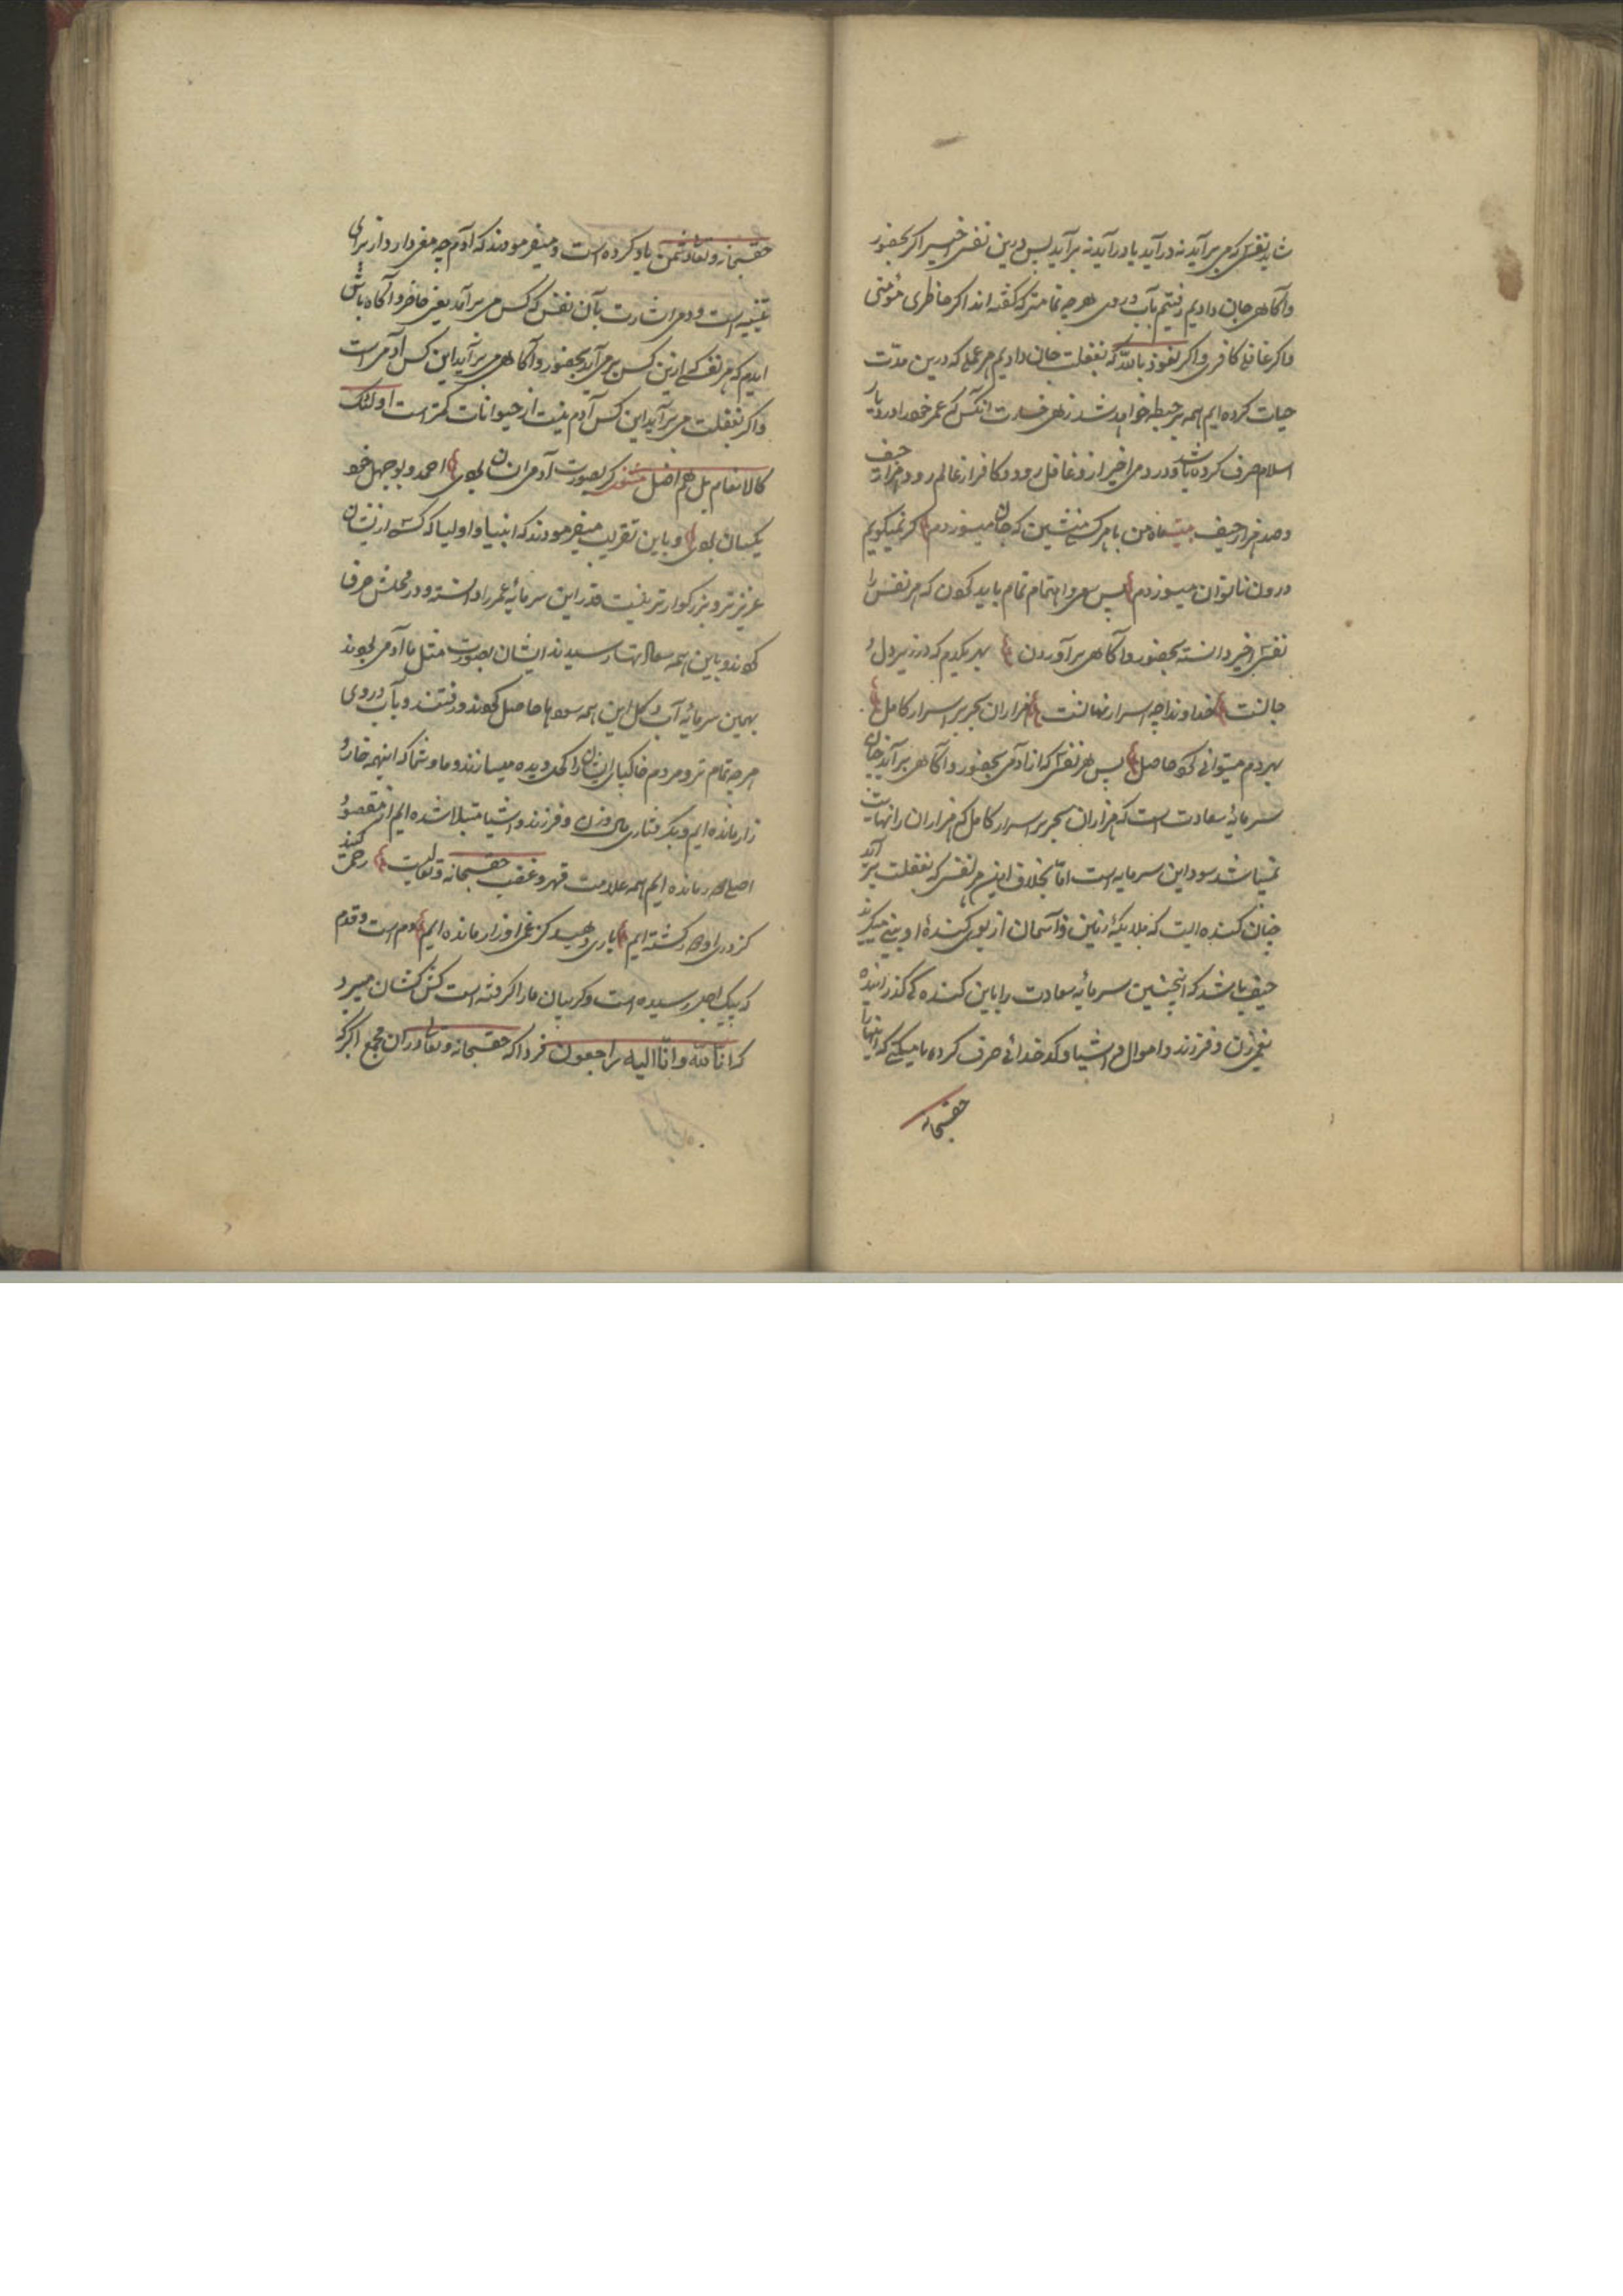 شاید نفسی که می برآید نه درآید یا درآید نه برآید پس درین نفس اخیر اگر بحضور
و آگاهی جان دادیم رفتیم بآب روی هرچه تمامتر که گفته اند اگر حاضری مؤمنی
و اگر غافلی کافری و اگر نعوذ بالله که بغفلت جان دادیم هر عملی که درین مدت
حیات کرده ایم همه بر حبطه خواهد شد زهی خسارت آنکس که عمر خود را در دیار
اسلام صرف کرده باشد و در دم اخیر از و غافل رود و کافر از عالم رود هزار حیف
و صد هزار حیف بیت ماه من با هر کسی منشین که جان میسوزدم اگر نمیگویم
درون ناتوان میسوزدم پس سعی و اهتمام تمام باید نمودن که هر نفس را
نفس اخیر دانسته بحضور و آگاهی برآوردن بهر یکدم که در زیر دل و
جانست خداوندا چه اسرار نهانست هزاران بحر پر اسرار کامل
بهر دم میتوانی کرد حاصل پس هر نفسی که از آدمی بحضور و آگاهی برآید چنان
سرمایهٔ سعادت است که هزاران بحر پر اسرار کامل که هزاران را نهایت
نمیباشد سود این سرمایه است اما بخلاف این هر نفسی که بغفلت برآید
چنان گنده ایست که ملایکهٔ زمین و آسمان از بوی گندهٔ او بینی میگیرند
حیف باشد که اینچنین سرمایهٔ سعادت را باین گنده گی گذرانیده
بغم زن و فرزند و اموال و اشیا و کدخدائی صرف کرده که اینها را
حقسبحانه
حقسبحانه و تعالی دشمن یاد کرده است و میفرمودند که آدم چه معنی دارد از برای
تنبیه است و دمی اشارت بآن نفس که کس می برآید یعنی حاضر و آگاه باش
ایدم که هر نفسی که ازین کس برمی آید بحضور و آگاهی می برآید این کس آدمی است
و اگر بغفلت می برآید این کس آدم نیست از حیوانات کمتر است اولئک
کالانعام بل هم اضل مثنوی گر بصورت آدمی انسان بودی احمد و بوجهل خود
یکسان بودی و باین تقریب میفرمودند که انبیا و اولیا که کسی از ایشان
عزیزتر و بزرگوارتر نیست قدر این سرمایهٔ عمر را دانسته و در محلش صرف
کردند و باین همه سعادتها رسیدند ایشان بصورت مثل ما آدمی بودند
بهمین سرمایهٔ آب و گل این همه سودها حاصل کردند و رفتند و بآب روی
هرچه تمام تر و مردم خاکپای ایشان را کحل دیده میسازند و ما و شما که اینهمه خار و
زار مانده ایم و بگرفتاری مال و زن و فرزند و اشیا مبتلا شده ایم از مقصود
اصلی دور مانده ایم همه علامت قهر و غضب حقسبحانه و تعالیست رحمی کنید
کز در او دور گشته ایم یاری دهید کز غم او زار مانده ایم دم است و قدم
که پیک اجل رسیده است و گریبان ما را گرفته است کش کشان میبرد
که انا لله و انا الیه راجعون فردا که حقسبحانه و تعالی در آن مجمع اکبر که